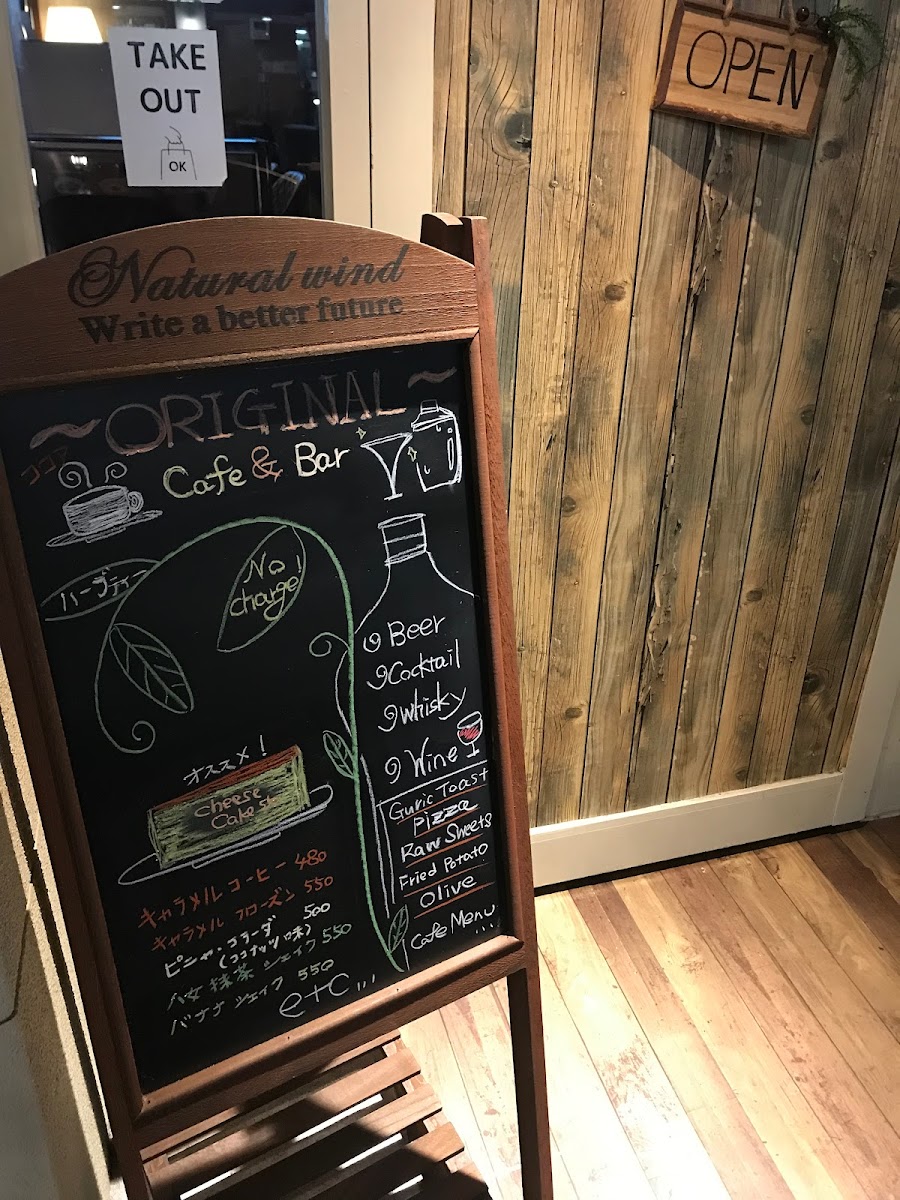 TAKE
OUT
OK
OPEN
Natural wind
Write a better future
~ORIGINAL~
Cafe & Bar
ココア
ハーブティー
No!
charge
Beer
Cocktail
whisky
Wine
オススメ!
cheese
Cake
Guric Toast
Pizza
Raw Sweets
Fried Potato
Olive
Cafe Menu...
キャラメル コーヒー 480
キャラメル フローズン 550
ピニャ・コラーダ 500
(ココナッツ味)
八女 抹茶 シェイク 550
バナナ シェイク 550
etc...